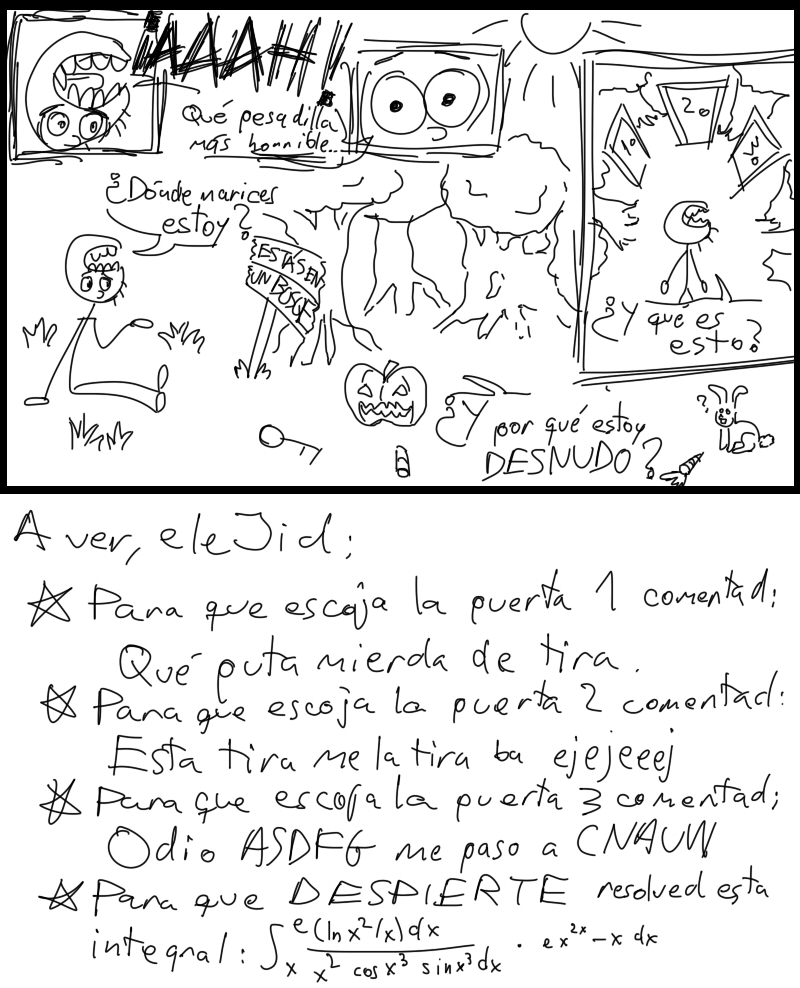 AAAAH!
Qué pesadilla
más horrible...
¿Dónde narices
estoy?
ESTÁS EN
UN BOSQUE
1º
2º
3º
¿Y qué es
esto?
¿Y
por qué estoy
DESNUDO?
?
A ver, eleJid:
Para que escoja la puerta 1 comentad:
Qué puta mierda de tira.
Para que escoja la puerta 2 comentad:
Esta tira me la tira ba ejejeeej
Para que escoja la puerta 3 comentad:
Odio ASDFG me paso a CNAUW
Para que DESPIERTE resolved esta
integral: ∫ₓ e(ln x²/x)dx / x² cos x³ sin x³ dx · ex²ˣ - x dx